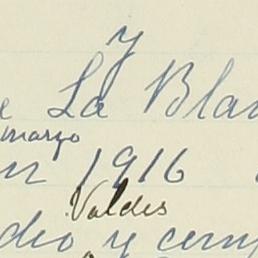 y
La Blan
marzo
en 1916
Valdes
dio y cem